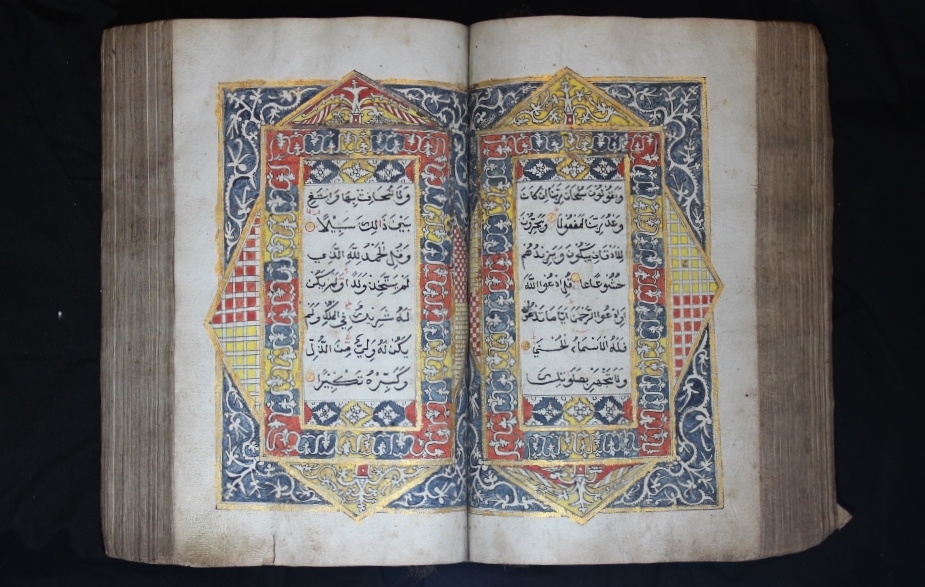 وَيَقُولُونَ سُبْحَانَ رَبِّنَا إِنْ كَانَ
وَعْدُ رَبِّنَا لَمَفْعُولًا وَيَخِرُّونَ
لِلْأَذْقَانِ يَبْكُونَ وَيَزِيدُهُمْ
خُشُوعًا قُلِ ادْعُوا اللَّهَ
أَوِ ادْعُوا الرَّحْمَنَ أَيًّا مَا تَدْعُوا
فَلَهُ الْأَسْمَاءُ الْحُسْنَى
وَلَا تَجْهَرْ بِصَلَوتِكَ
وَلَا تُخَافِتْ بِهَا وَابْتَغِ
بَيْنَ ذَالِكَ سَبِيلًا
وَقُلِ الْحَمْدُ لِلَّهِ الَّذِي
لَمْ يَتَّخِذْ وَلَدًا وَلَمْ يَكُنْ
لَهُ شَرِيكٌ فِي الْمُلْكِ وَلَمْ
يَكُنْ لَهُ وَلِيٌّ مِنَ الذُّلِّ
وَكَبِّرْهُ تَكْبِيرًا